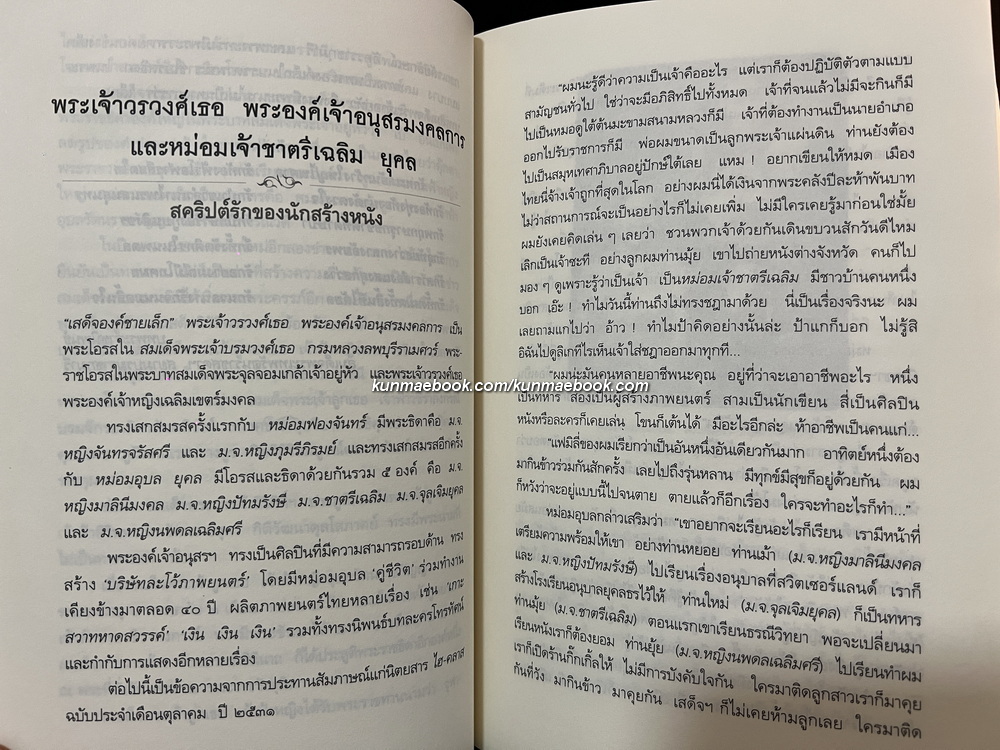 พระเจ้าวรวงศ์เธอ พระองค์เจ้าอนุสรมงคลการ
และหม่อมเจ้าชาตรีเฉลิม ยุคล
สคริปต์รักของนักสร้างหนัง
“เสด็จองค์ชายเล็ก” พระเจ้าวรวงศ์เธอ พระองค์เจ้าอนุสรมงคลการ เป็น
พระโอรสใน สมเด็จพระเจ้าบรมวงศ์เธอ กรมหลวงลพบุรีราเมศวร์ พระ-
ราชโอรสในพระบาทสมเด็จพระจุลจอมเกล้าเจ้าอยู่หัว และพระเจ้าวรวงศ์เธอ
พระองค์เจ้าหญิงเฉลิมเขตร์มงคล
ทรงเสกสมรสครั้งแรกกับ หม่อมฟองจันทร์ มีพระธิดาคือ ม.จ.
หญิงจันทรจรัสศรี และ ม.จ.หญิงภุมรีภิรมย์ และทรงเสกสมรสอีกครั้ง
กับ หม่อมอุบล ยุคล มีโอรสและธิดาด้วยกันรวม ๕ องค์ คือ ม.จ.
หญิงมาลินีมงคล ม.จ.หญิงปัทมรังษี ม.จ.ชาตรีเฉลิม ม.จ.จุลเจิมยุคล
และ ม.จ.หญิงนพดลเฉลิมศรี
พระองค์เจ้าอนุสรฯ ทรงเป็นศิลปินที่มีความสามารถรอบด้าน ทรง
สร้าง ‘บริษัทละโว้ภาพยนตร์’ โดยมีหม่อมอุบล ‘คู่ชีวิต’ ร่วมทำงาน
เคียงข้างมาตลอด ๔๐ ปี ผลิตภาพยนตร์ไทยหลายเรื่อง เช่น ‘เกาะ
สวาทหาดสวรรค์’ ‘เงิน เงิน เงิน’ รวมทั้งทรงนิพนธ์บทละครโทรทัศน์
และกำกับการแสดงอีกหลายเรื่อง
ต่อไปนี้เป็นข้อความจากการประทานสัมภาษณ์แก่นิตยสาร ไฮ-คลาส
ฉบับประจำเดือนตุลาคม ปี ๒๕๓๑
“ผมนะรู้ดีว่าความเป็นเจ้าคืออะไร แต่เราก็ต้องปฏิบัติตัวตามแบบ
สามัญชนทั่วไป ใช่ว่าจะมีอภิสิทธิ์ไปทั้งหมด เจ้าที่จนแล้วไม่มีจะกินก็มี
ไปเป็นหมอดูใต้ต้นมะขามสนามหลวงก็มี เจ้าที่ต้องทำงานเป็นนายอำเภอ
ออกไปรับราชการก็มี พ่อผมขนาดเป็นลูกพระเจ้าแผ่นดิน ท่านยังต้อง
ไปเป็นสมุหเทศาภิบาลอยู่ปักษ์ใต้เลย แหม ! อยากเขียนให้หมด เมือง
ไทยนี่จ้างเจ้าถูกที่สุดในโลก อย่างผมนี่ได้เงินจากพระคลังปีละห้าพันบาท
ไม่ว่าสถานการณ์จะเป็นอย่างไรก็ไม่เคยเพิ่ม ไม่มีใครเคยรู้มาก่อนใช่มั้ย
ผมยังเคยคิดเล่น ๆ เลยว่า ชวนพวกเจ้าด้วยกันเดินขบวนสักวันดีไหม
เลิกเป็นเจ้าซะที อย่างลูกผมท่านมุ้ย เขาไปถ่ายหนังต่างจังหวัด คนก็ไป
มอง ๆ ดูเพราะรู้ว่าเป็นเจ้า เป็นหม่อมเจ้าชาตรีเฉลิม มีชาวบ้านคนหนึ่ง
บอก เอ๊ะ ! ทำไมวันนี้ท่านถึงไม่ทรงชฎามาด้วย นี่เป็นเรื่องจริงนะ ผม
เลยถามแกไปว่า อ้าว ! ทำไมป้าคิดอย่างนั้นล่ะ ป้าแกก็บอก ไม่รู้สิ
อิฉันไปดูลิเกทีไรเห็นเจ้าใส่ชฎาออกมาทุกที...
“ผมน่ะมันคนหลายอาชีพนะคุณ อยู่ที่ว่าจะเอาอาชีพอะไร หนึ่ง
เป็นทหาร สองเป็นผู้สร้างภาพยนตร์ สามเป็นนักเขียน สี่เป็นศิลปิน
หนังหรือละครก็เคยเล่น โขนก็เต้นได้ มีอะไรอีกล่ะ ห้าอาชีพเป็นคนแก่...
“แฟมิลี่ของผมเรียกว่าเป็นอันหนึ่งอันเดียวกันมาก อาทิตย์หนึ่งต้อง
มากินข้าวร่วมกันสักครั้ง เลยไปถึงรุ่นหลาน มีทุกข์มีสุขก็อยู่ด้วยกัน ผม
ก็หวังว่าจะอยู่แบบนี้ไปจนตาย ตายแล้วก็อีกเรื่อง ใครจะทำอะไรก็ทำ...”
หม่อมอุบลกล่าวเสริมว่า “เขาอยากจะเรียนอะไรก็เรียน เรามีหน้าที่
เตรียมความพร้อมให้เขา อย่างท่านหยอย ท่านเม้า (ม.จ.หญิงมาลินีมงคล
และ ม.จ.หญิงปัทมรังษี) ไปเรียนเรื่องอนุบาลที่สวิตเซอร์แลนด์ เราก็
สร้างโรงเรียนอนุบาลยุคลธรไว้ให้ ท่านใหม่ (ม.จ.จุลเจิมยุคล) ก็เป็นทหาร
ท่านมุ้ย (ม.จ.ชาตรีเฉลิม) ตอนแรกเขาเรียนธรณีวิทยา พอจะเปลี่ยนมา
เรียนหนังเราก็ต้องยอม ท่านยุ้ย (ม.จ.หญิงนพดลเฉลิมศรี) ไปเรียนทำผม
เราก็เปิดร้านกิ๊กเกิ้ลให้ ไม่มีการบังคับใจกัน ใครมาติดลูกสาวเราก็มาคุย
กันที่วัง มากินข้าว มาคุยกัน เสด็จฯ ก็ไม่เคยห้ามลูกเลย ใครมาติด
kunmaebook.com/kunmaebook.com